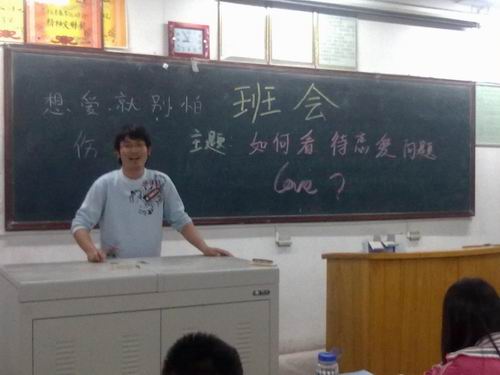 想、爱、就别怕
伤
班会
主题 如何看待恋爱问题
Love?